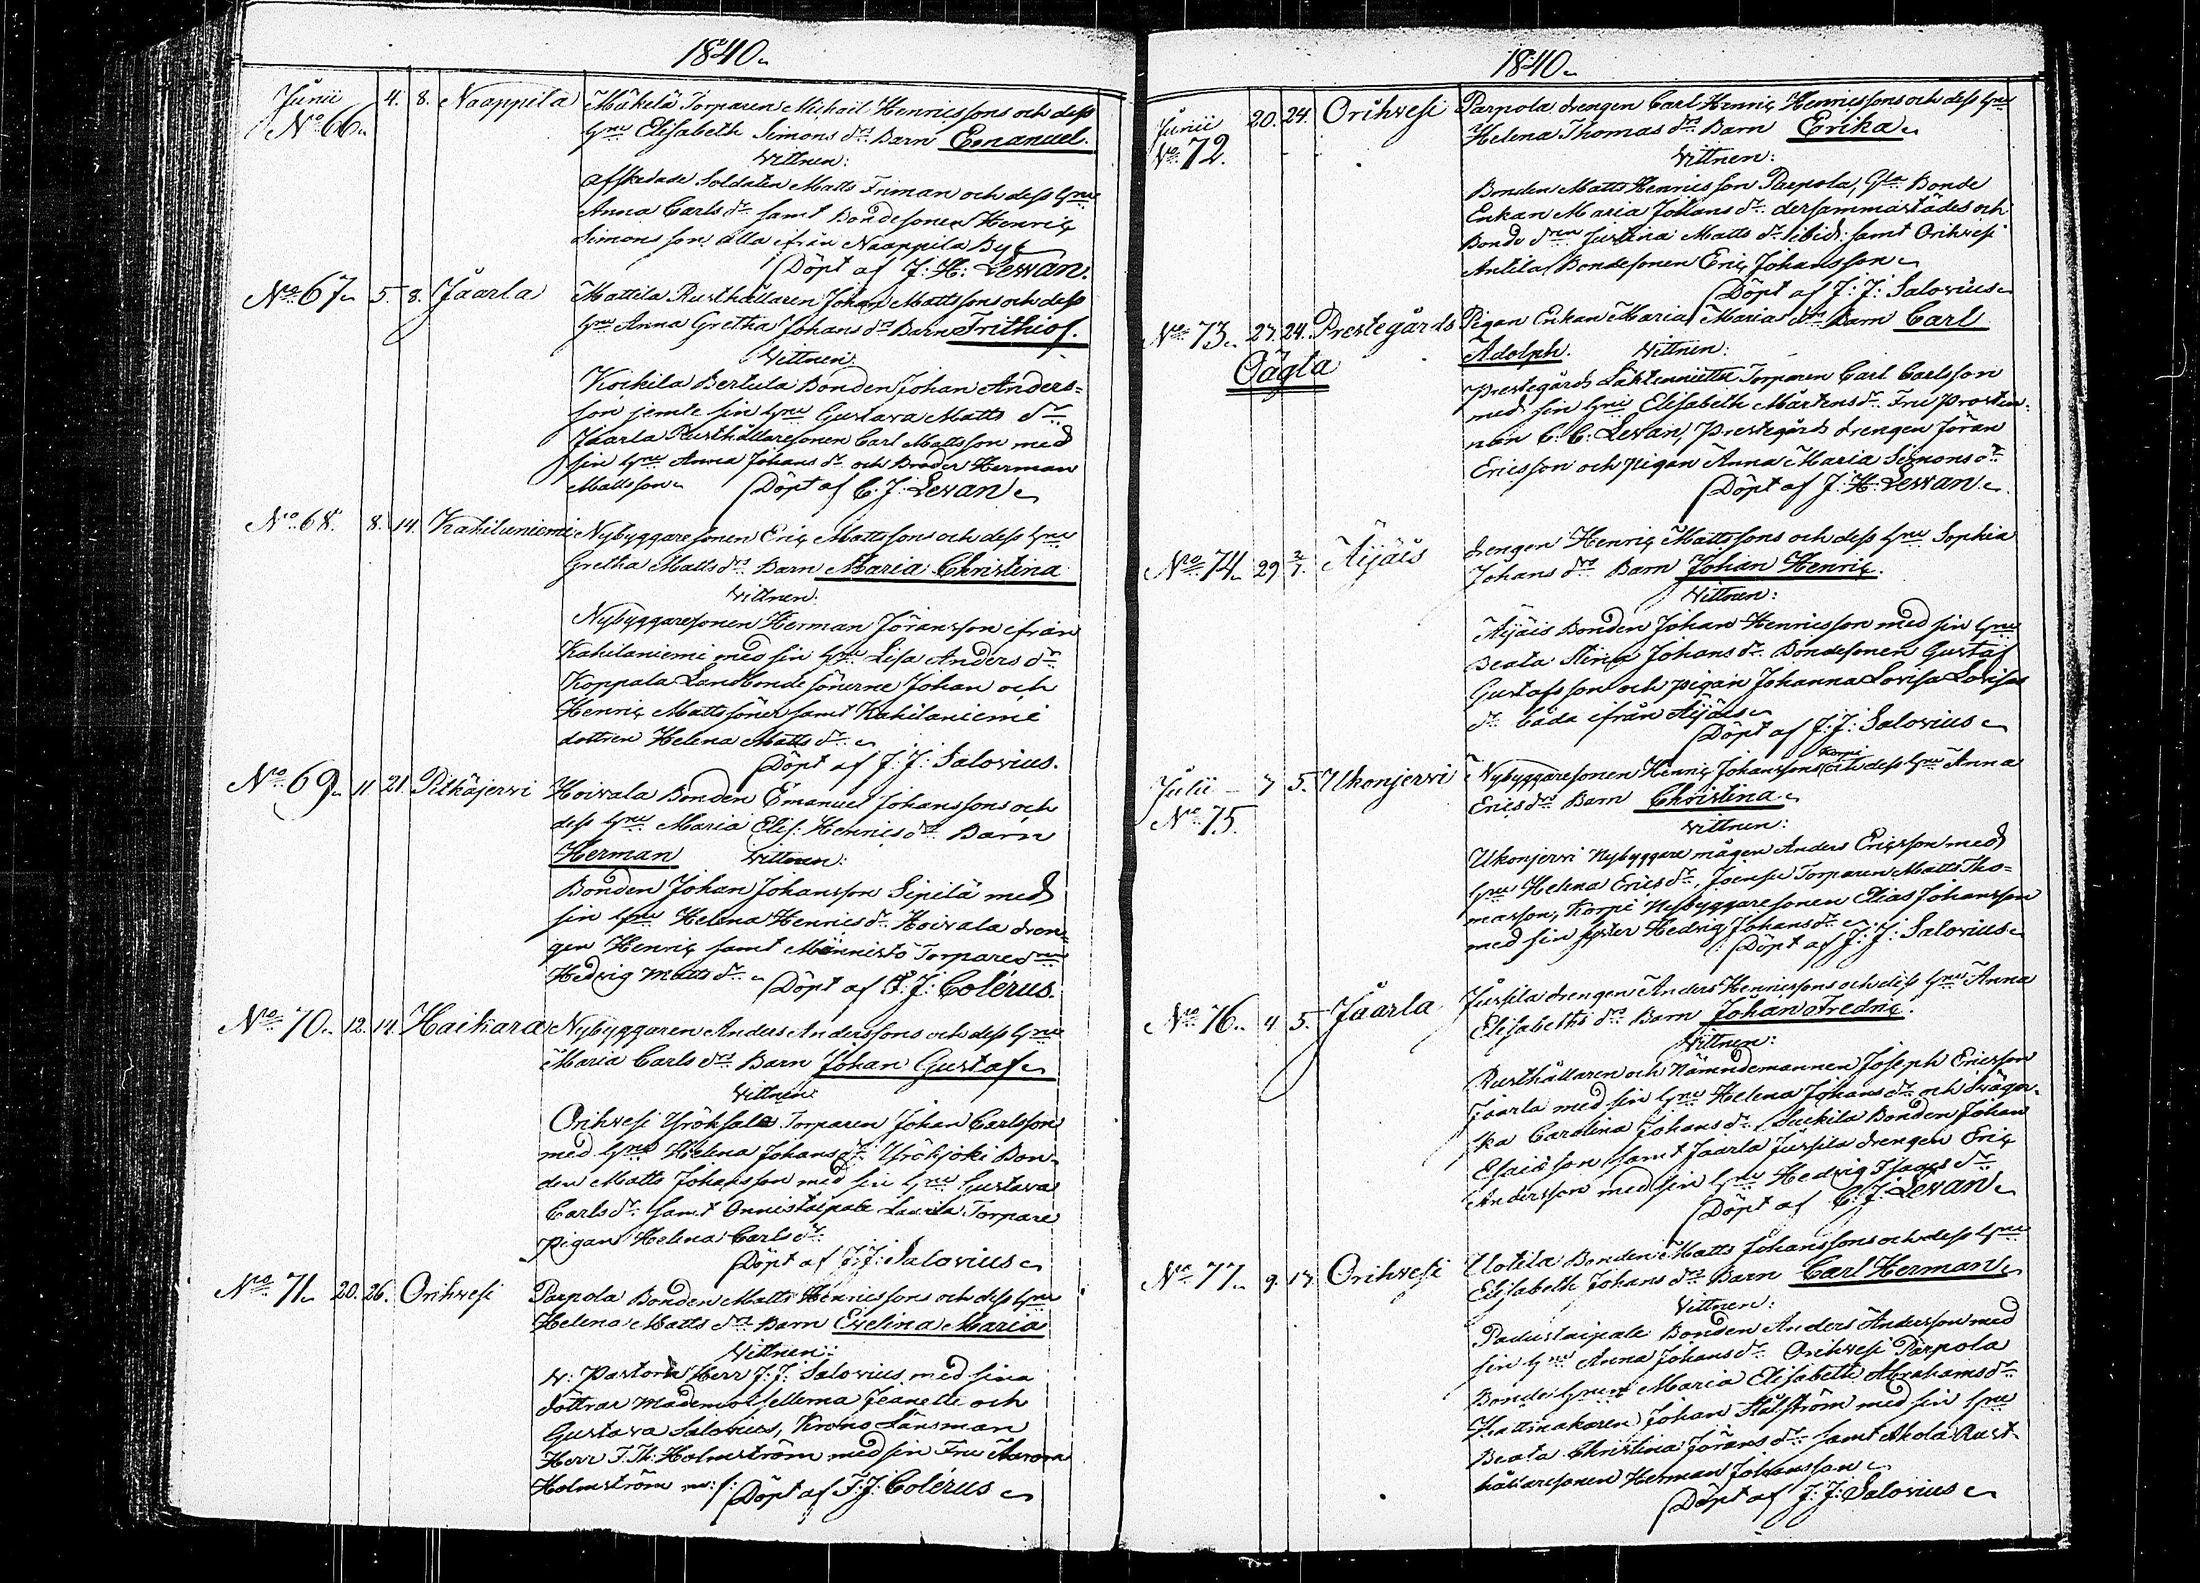 1840.
Junii 4. 8. Naappila Mäkelä Torparen Michail Henricssons och dess
No 66. Hru Elisabeth Simons drs Barn Emanuel.
Vittnen:
Afskedade Soldaten Matts Friman och dess Hru
Anna Carls dr samt Bondesonen Henric
Simonsson alla ifrån Naappila By
Döpt af J: H: Levan.
No 67. 5. 8. Jaarla Mattila Rusthållaren Johan Mattssons och dess
Hru Anna Gretha Johans drs Barn Frithiof.
Vittnen:
Kockila Bertula Bonden Johan Anders=
son jemte sin Hru Gustava Matts dr
Jaarla Rusthållaresonen Carl Mattsson med
sin Hru Anna Johans dr och Broder Herman
Mattsson Döpt af C. J: Levan
No 68. 8. 14. Kahilaniemi Nybyggaresonen Eric Mattssons och dess Hru
Gretha Matts drs Barn Maria Christina
Vittnen:
Nybyggaresonen Herman Jöransson ifrån
Kahilaniemi med sin Hru Lisa Anders dr
Koppala Landbondesönerne Johan och
Henric Mattssöner samt Kahilaniemi
dottren Helena Matts dr
Döpt af J: J: Salovius.
No 69. 11 21. Pitkäjervi Hoivala Bonden Emanuel Johanssons och
dess Hru Maria Elis: Henrics drs Barn
Herman Vittnen:
Bonden Johan Johansson Sipilä med
sin Hru Helena Henrics dr Hoivala dren=
gen Henric samt Männistö Torpare drn
Hedvig Matts dr Döpt af F: J: Colérus.
No 70. 12. 14. Haikara Nybyggaren Anders Anderssons och dess Hru
Maria Carls drs Barn Johan Gustaf
Vittnen:
Orihvesi Torparen Johan Carlsson
med Hru Helena Johans dr Yröjoki Bon-
den Matts Johansson med sin Hru Gustava
Carls dr samt Onnistaipale Torpare
Pigan Helena Carls dr
Döpt af J: J: Salovius
No 71. 20. 26. Orihvesi Parpola Bonden Matts Henricssons och dess Hru
Helena Matts drs Barn Evelina Maria
Vittnen:
V: Pastorn Herr J: J: Salovius med sina
döttrar Mademoisellerna Jeanette och
Gustava Salovius, Krono Länsman
Herr F. Th: Holmström med sin Fru Aurora
Holmström m: f: Döpt af F: J: Colérus
1840.
Junii 20. 24. Orihvesi Parpola drengen Carl Henric Henricssons och dess Hru
No 72. Helena Thomas drs Barn Erika
Vittnen:
Bonden Matts Henricsson Parpola, Gla Bonde
Enkan Maria Johans dr dersammastädes och
Bonde drn Justina Matts dr ibid: samt Orihvesi
Antila Bondesonen Eric Johansson
Döpt af J: J: Salovius
No 73. 27. 24. Prestegårds Pigan Enkan Maria Maria drs Barn Carl
Oägta Adolph. Vittnen:
Prestegårds Torparen Carl Carlsson
med sin Hru Elisabeth Mårtens dr Fru Prostin-
nan C: C: Levan, Prestegårds drengen Jöran
Ericsson och pigan Anna Maria Simons dr
Döpt af J: H: Levan
No 74. 29 2/7. Äijäis drengen Henric Mattssons och dess Hru Sophia
Johans drs Barn Johan Henric.
Vittnen:
Äijäis Bonden Johan Henricsson med sin Hru
Beata Stina Johans dr Bondesonen Gustaf
Gustafsson och pigan Johanna Lovisa Lovisas
dr båda ifrån Äijäis
Döpt af J: J: Salovius
Julii 7 5. Ukonjervi Nybyggaresonen Henric Johanssons Korpi och dess Hru Anna
No 75. Erics drs Barn Christina
Vittnen:
Ukonjervi Nybyggare mågen Anders Ericsson med
Hru Helena Erics dr Torparen Matts Tho=
masson, Korpi Nybyggaresonen Elias Johansson
med sin syster Hedvig Johans dr
Döpt af J: J: Salovius
No 76. 4 5. Jaarla Jussila drengen Anders Henricssons och dess Hru Anna
Elisabeths drs Barn Johan Fredric.
Vittnen:
Rusthållaren och Nämndemannen Joseph Ericsson
Jaarla med sin Hru Helena Johans dr och Sväger-
ska Carolina Johans dr Seckila Bonden Johan
Esaiasson samt Jaarla Jussila drengen Eric
Andersson med sin Hru Hedvig Isaacs dr
Döpt af C: J: Levan
No 77. 9. 17. Orihvesi Uotila Bonden Matts Johanssons och dess Hru
Elisabeth Johans drs Barn Carl Herman
Vittnen:
Padustaipale Bonden Anders Andersson med
sin Hru Anna Johans dr Orihvesi Parpola
Bonde Hrun Maria Elisabeth Abrahams dr
Hattmakaren Johan Stålström med sin Hru
Beata Christina Jörans dr samt Akola Rust-
hållaresonen Herman Johansson
Döpt af J: J: Salovius